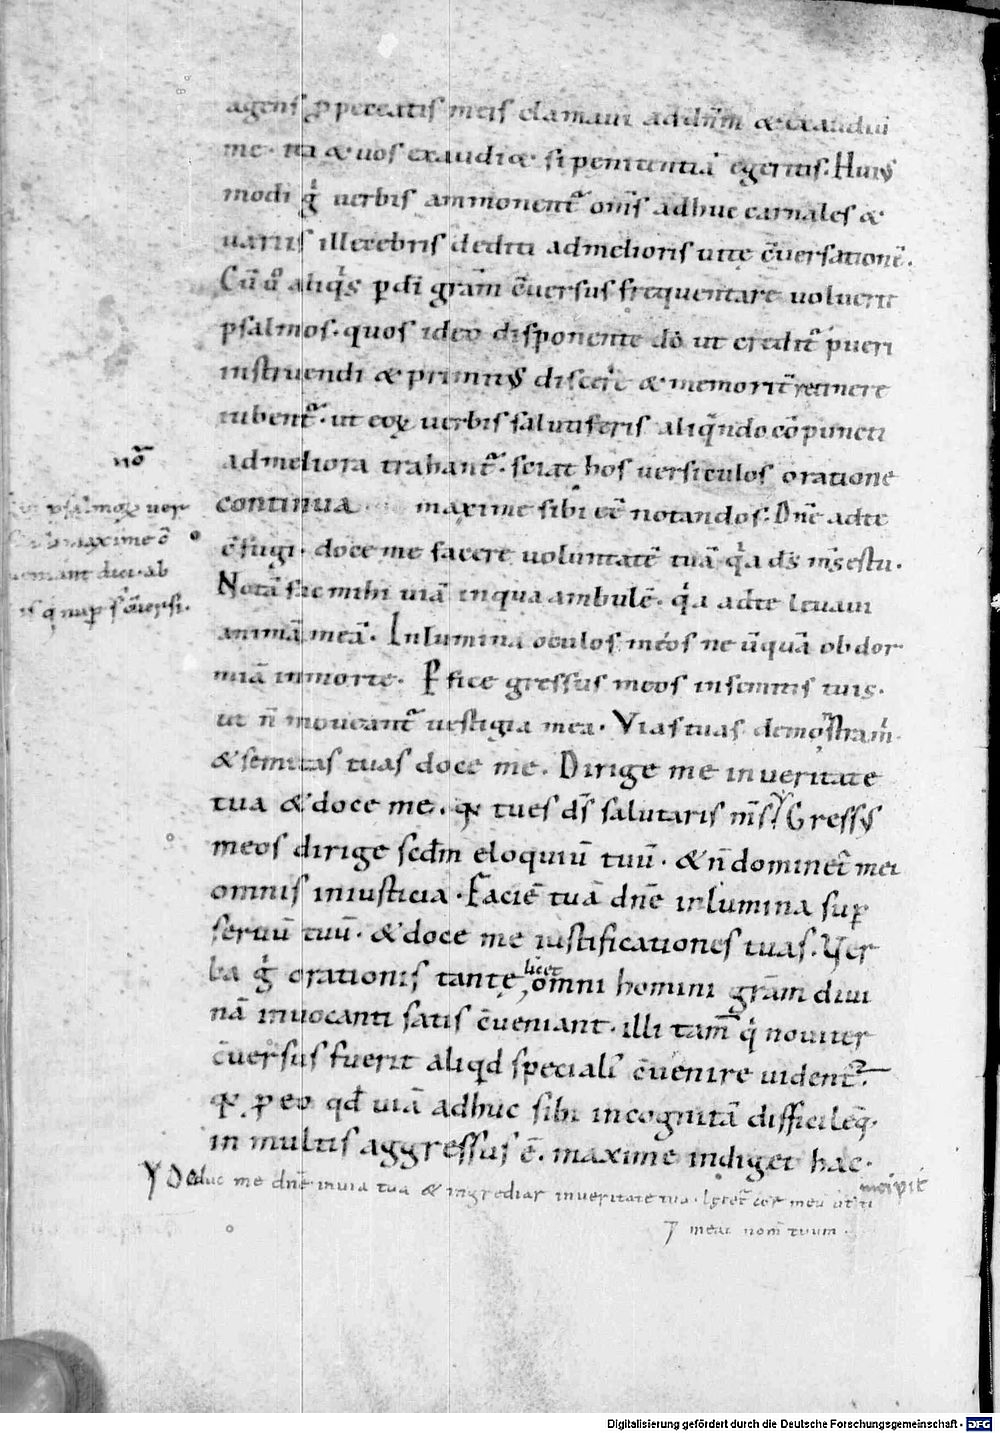 agens ꝓ peccatis meis clamaui ad dn̄m & exaudiui
me· ita & uos exaudi& si penitentiā egeritis. Huiꝰ
modi gͥ uerbis ammonent᷑ om̄s adhuc carnales &
uariis illecebris dediti ad melioris uitę c̄uersationē.
Cū u͛o aliqͥs ꝑ dī grām c̄uersus frequentare uoluerit
psalmos· quos ideo disponente dō ut credit᷑ pueri
instruendi & primitꝰ discere & memorit̄ retinere
iubent᷑· ut eoꝝ uerbis salutiferis aliqͣndo cōpuncti
ad meliora trahant᷑· sciat hos uersiculos oratione
continua maxime sibi eē notandos. Dn̄e ad te
c̄fugi· doce me facere uoluntatē tuā qͥa ds̄ ms̄ es tu.
Notā fac mihi uiā in qua ambulē· qͥa ad te leuaui
animā meā. Inlumina oculos meos ne ūquā obdor
miā in morte. Ꝑfice gressus meos in semitis tuis.
ut n̄ moueant᷑ uestigia mea. Vias tuas demonstra m̄
& semitas tuas doce me. Dirige me in ueritate
tua & doce me. qͣ tu es ds̄ salutaris ms̄. Gressꝰ
meos dirige scdm̄ eloquiū tuū. & n̄ dominet᷑ mei
omnis iniusticia. Faciē tuā dn̄e inlumina suꝑ
seruū tuū. & doce me iustificationes tuas. Ver
ba gͥ orationis tantę licet omni homini grām diui
nā inuocanti satis c̄ueniant· illi tam̄ qͥ nouiter
c̄uersus fuerit aliqd speciali c̄uenire uident᷑.
qͣ ꝓ eo qd̄ uiā adhuc sibi incognitā difficilēqꝫ
in multis aggressus ē. maxime indiget hac.
nō
psalmoꝝ uer
maxime c̄
ueniant dici· ab
is qͥ nuꝑ s̄ c̄uersi.
Deduc me dn̄e in uia tua & ingrediar in ueritate tua· l&et᷑ cor meū ut ti
incipit
meat nom̄ tuum.
Digitalisierung gefördert durch die Deutsche Forschungsgemeinschaft - DFG